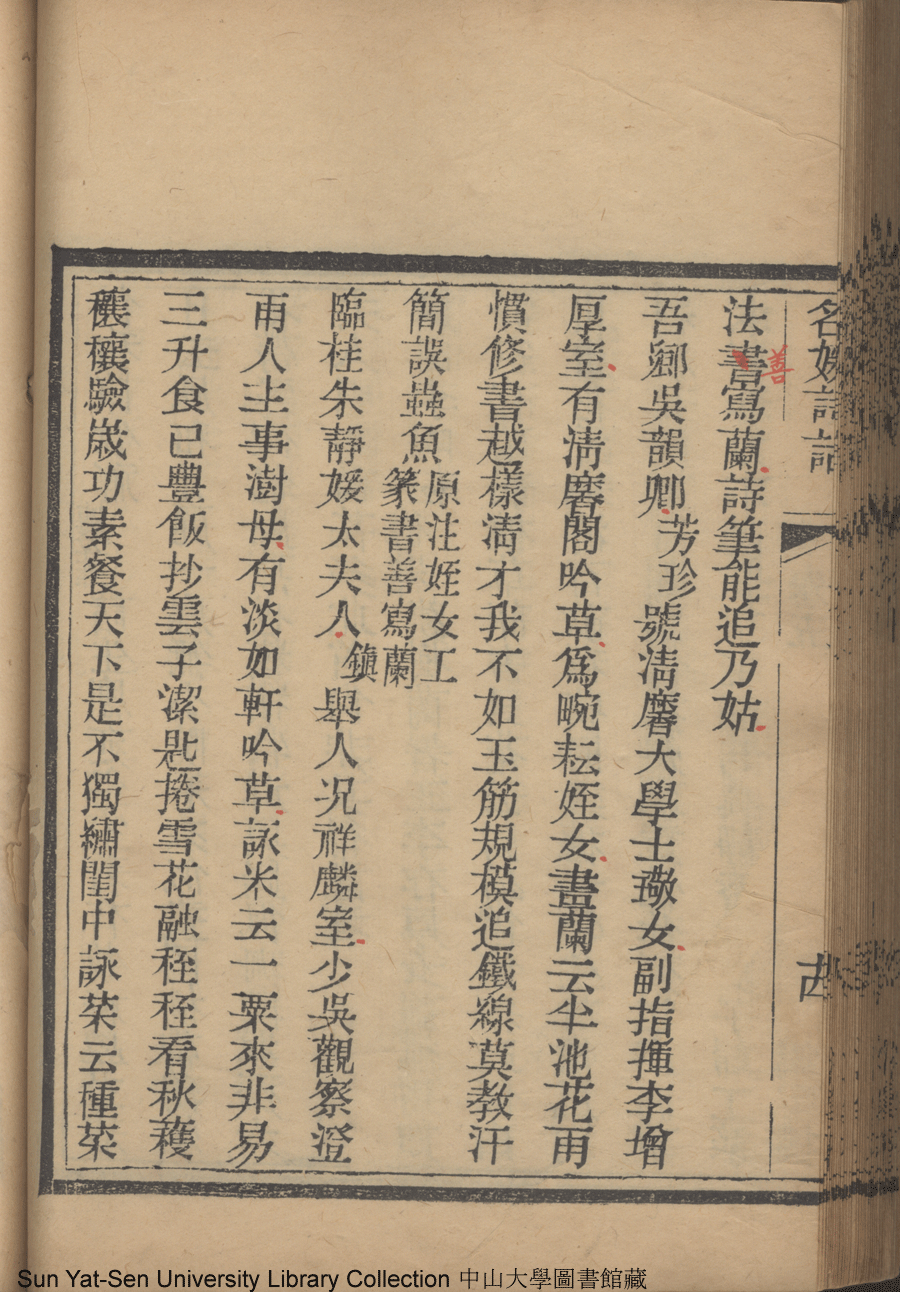 名媛詩話
法書寫蘭詩筆能追乃姑
善
吾鄉吳韻卿芳珍號清麐大學士璥女副指揮李增
厚室有清麐閣吟草為畹耘姪女畫蘭云半池花雨
慣修書越樣清才我不如玉筋規模追鐵線莫教汗
簡誤蟲魚原注姪女工篆書善寫蘭
臨桂朱靜媛太夫人鎮舉人况祥麟室少吳觀察澄
甫人主事澍母有淡如軒吟草詠米云一粟來非易
三升食已豐飯抄雲子潔匙捲雪花融秷秷看秋穫
穰穰驗嵗功素餐天下是不獨繡閨中詠菜云種菜
Sun Yat-Sen University Library Collection 中山大學圖書館藏